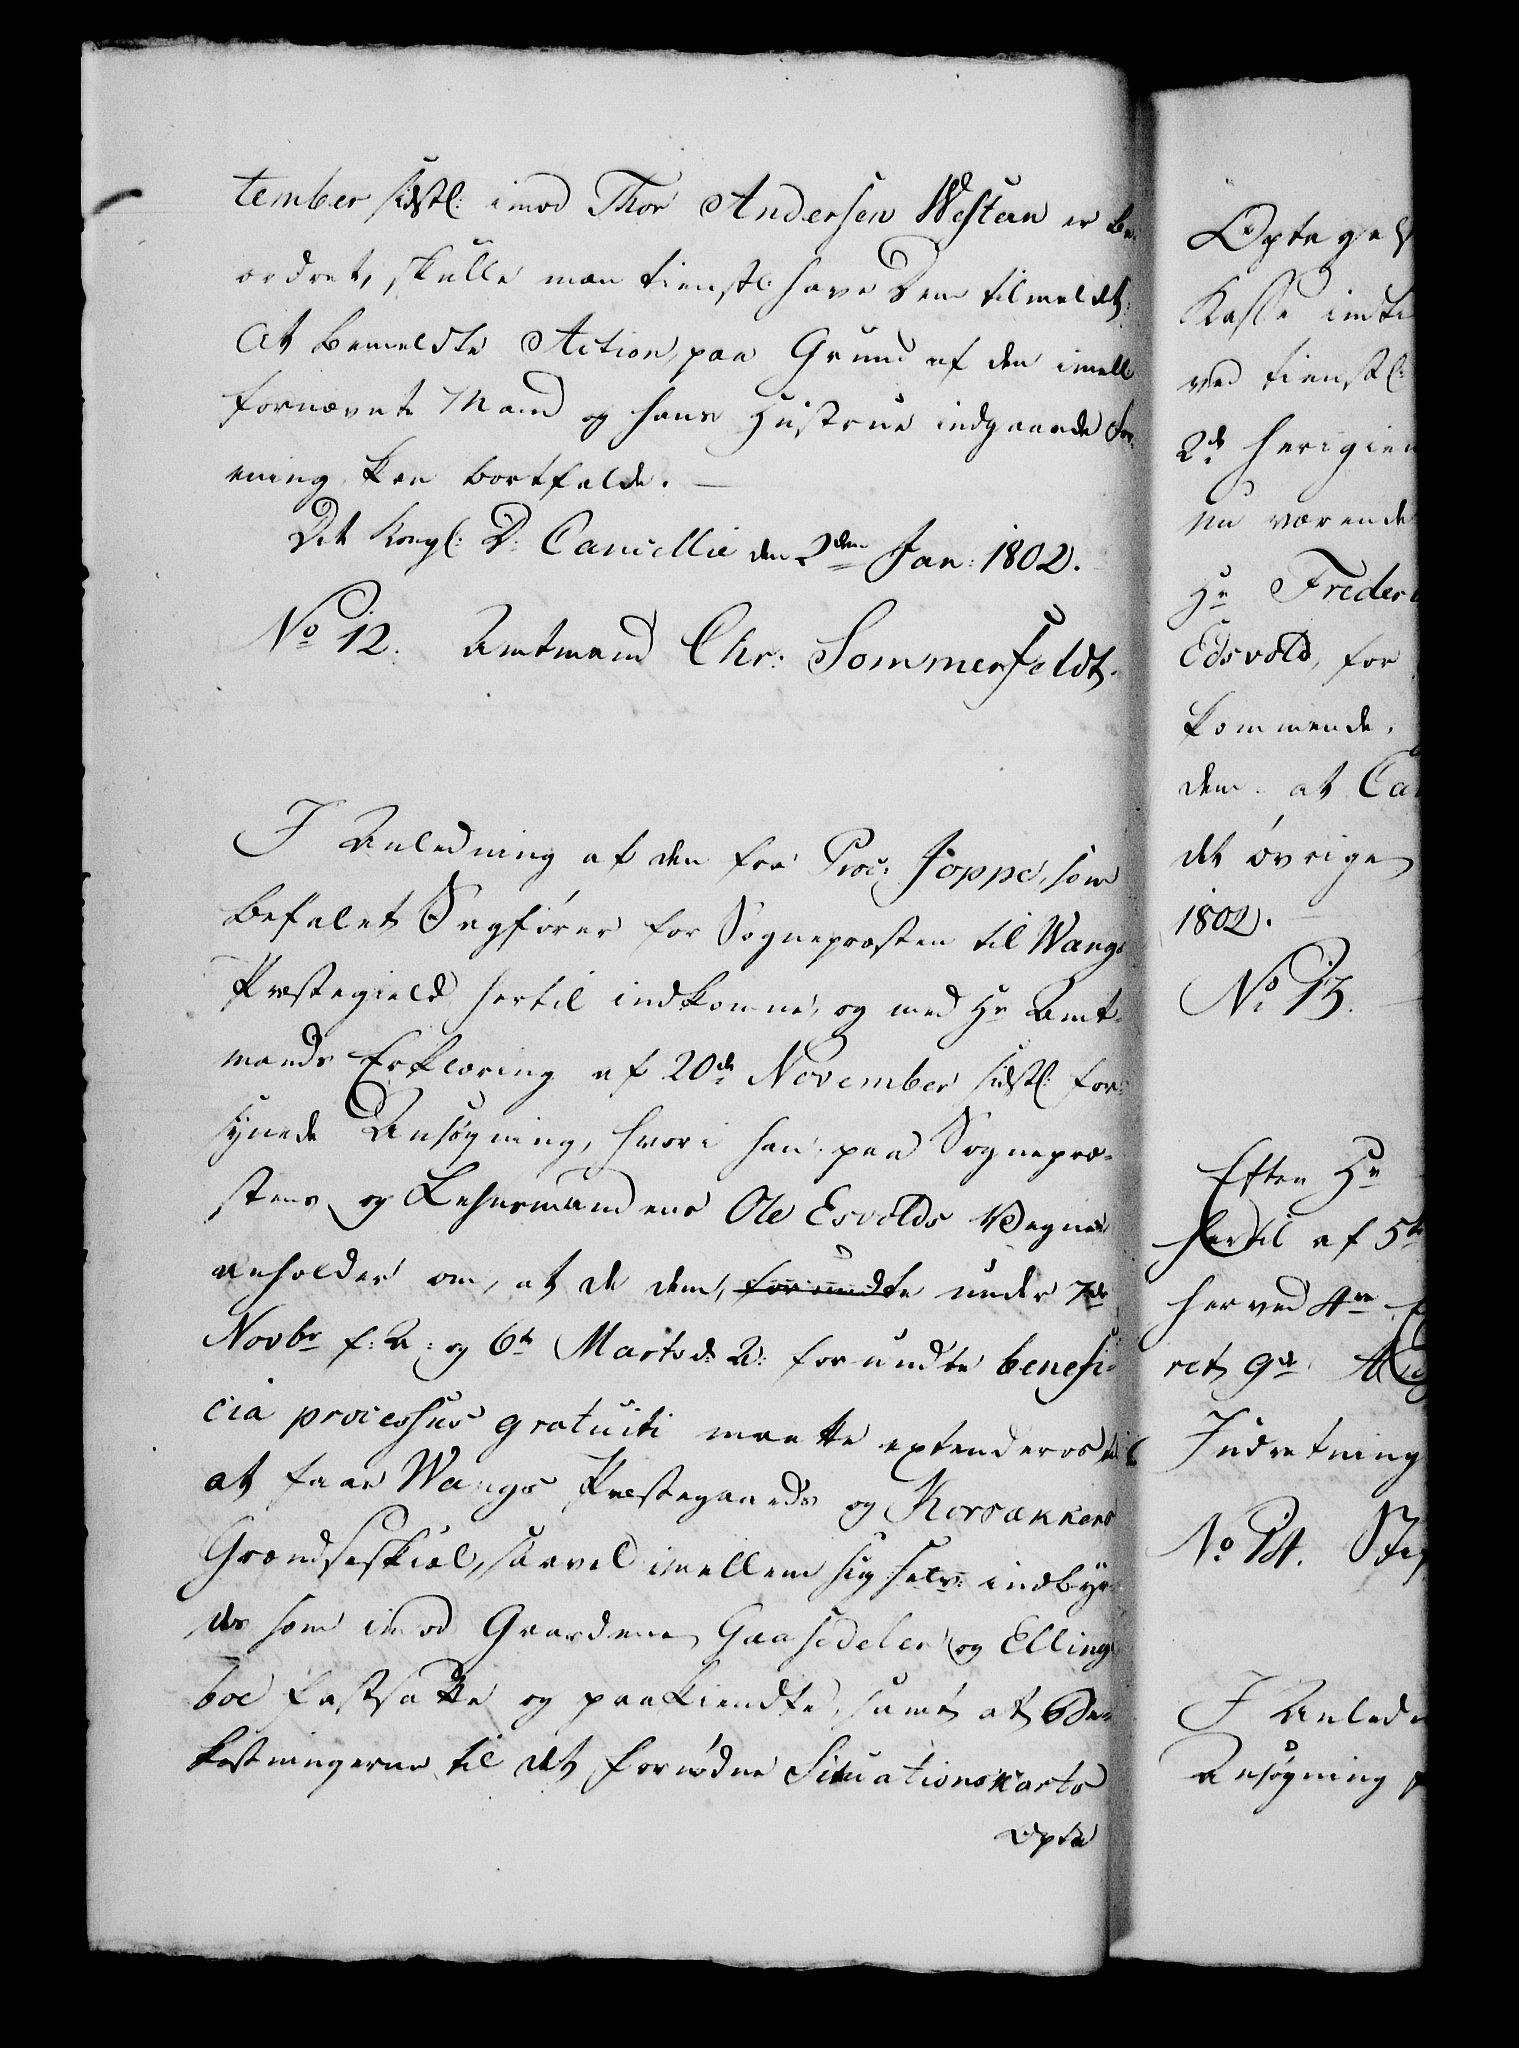 tember sidstl: imod Thor Andersen Western er be-
ordret, skulle man tienstl: have Dem tilmeldt:
At bemeldte Action, paa Grund af den imell:
fornævnte Mand og hans Hustrue indgaaede For-
ening kan bortfalde. —
Det Kongl: D: Cancellie den 2den Jan: 1802.
No 12. Amtmand Chr: Sommerfeldt.
I Anledning af den fra Proc: Joppe, som
befalet Sagfører for Sognepræsten til Wangs
Præstegield hertil indkomne, og med Hr Amt-
mands Erklæring af 20de November sidstl: for-
synede Ansøgning, hvori han paa Sognepræ-
stens og Lehnsmandens Ole Esvolds Vegne
anholder om, at de dem, forundte under 7de
Novbr f: A: og 6te Marts d: A: forundte benefi-
cia processus gratuiti maatte extenderes til
at faae Wangs Præstegaards og Korsækkens
Grændseskiel, saavel imellem sig selv indbyr-
des som imod Gaardene Gaasedelen og Ellings
boe fastsatte og paakiendte, samt at Be-
kostningerne til det fornødne Situationskarts
Opta
Optagels
Kasse indti
ved tienstl:
2de herigien
nu værende
Hr Frederi
Edsvold, for
kommende,
dem at Can
det øvrige
1802.
No 13.
Efter Hr
hertil af 5te
herved 4re
ret 9de
Indretning
No 14. Stif
I Anledn
Ansøgning